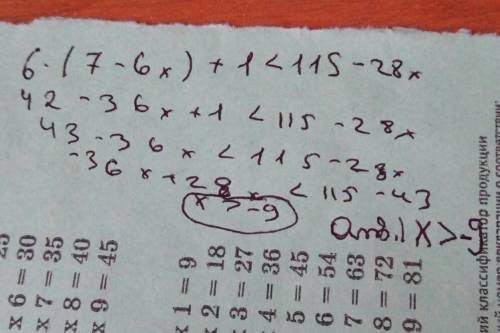 6 · (7 - 6x) + 1 < 115 - 28x
42 - 36x + 1 < 115 - 28x
43 - 36x < 115 - 28x
-36x + 28x < 115 - 43
x > -9
Ответ: x > -9
x 6 = 30
x 7 = 35
x 8 = 40
x 9 = 45
x 1 = 9
x 2 = 18
x 3 = 27
x 4 = 36
5 = 45
6 = 54
7 = 63
8 = 72
9 = 81
классификатор продукции